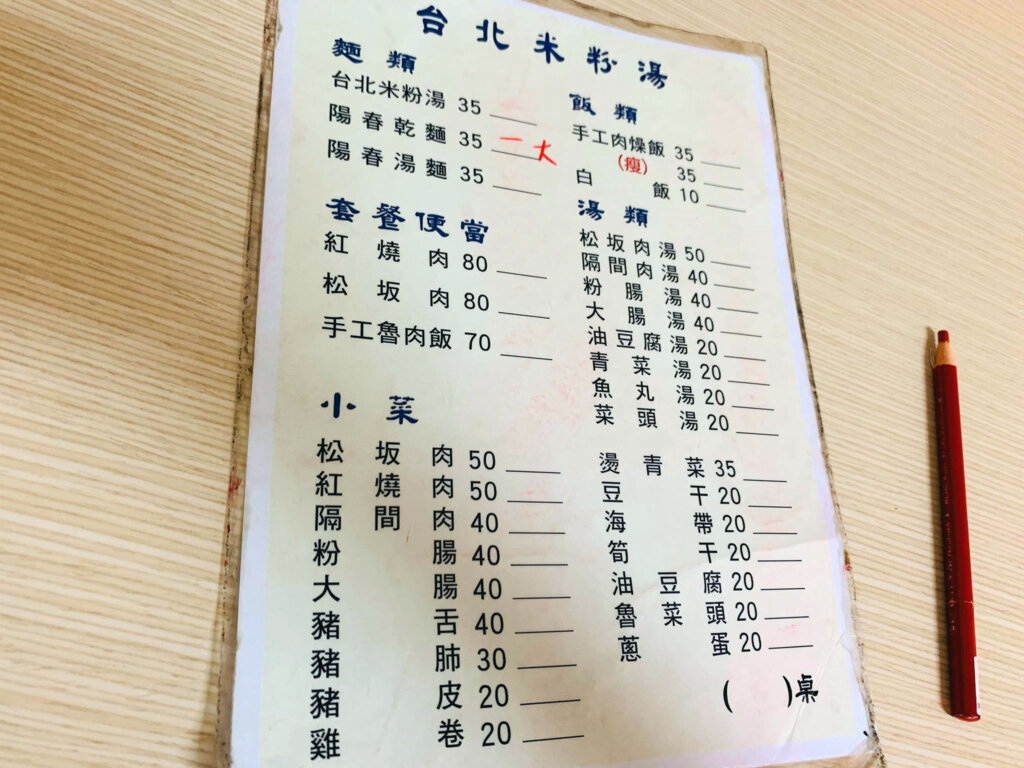 台北米粉湯
麵類
台北米粉湯 35
陽春乾麵 35 一大
陽春湯麵 35
套餐便當
紅燒肉 80
松坂肉 80
手工魯肉飯 70
小菜
松坂肉 50
紅燒肉 50
隔間肉 40
粉腸 40
大腸 40
豬舌 40
豬肺 30
豬皮 20
雞卷 20
飯類
手工肉燥飯 35
(瘦) 35
白飯 10
湯類
松坂肉湯 50
隔間肉湯 40
粉腸湯 40
大腸湯 40
油豆腐湯 20
青菜湯 20
魚丸湯 20
菜頭湯 20
燙青菜 35
豆干 20
海帶 20
筍干 20
油豆腐 20
魯菜頭 20
蔥蛋 20
( )桌